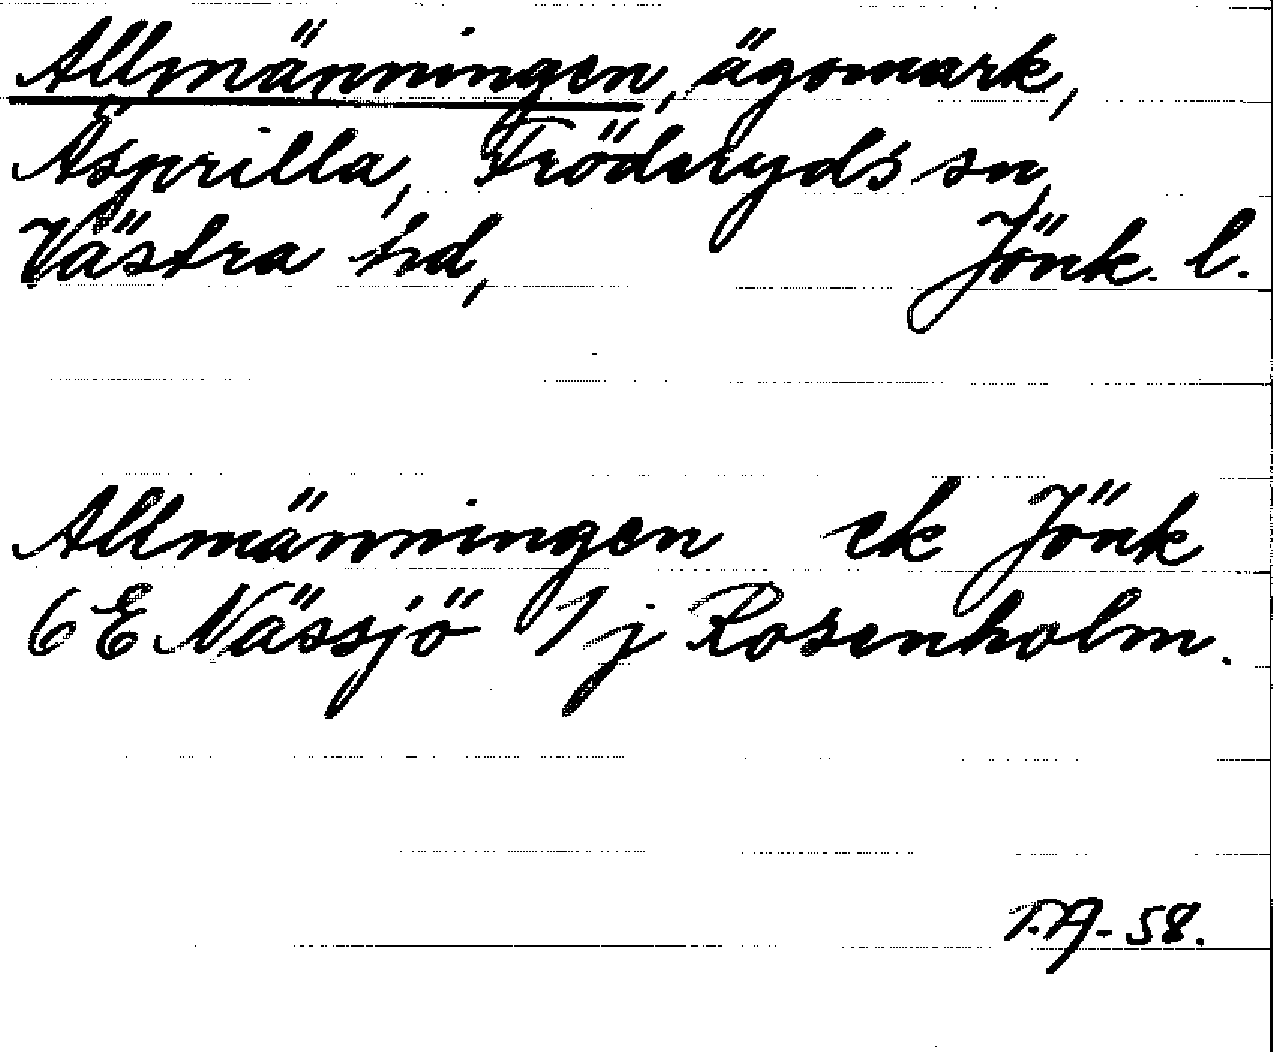 Allmänningen, ägomark,
Äsprilla, Fröderyds sn,
Västra hd, Jönk. l.
Allmänningen ek Jönk
6 E Nässjö 1 j Rosenholm.
T.A-58.